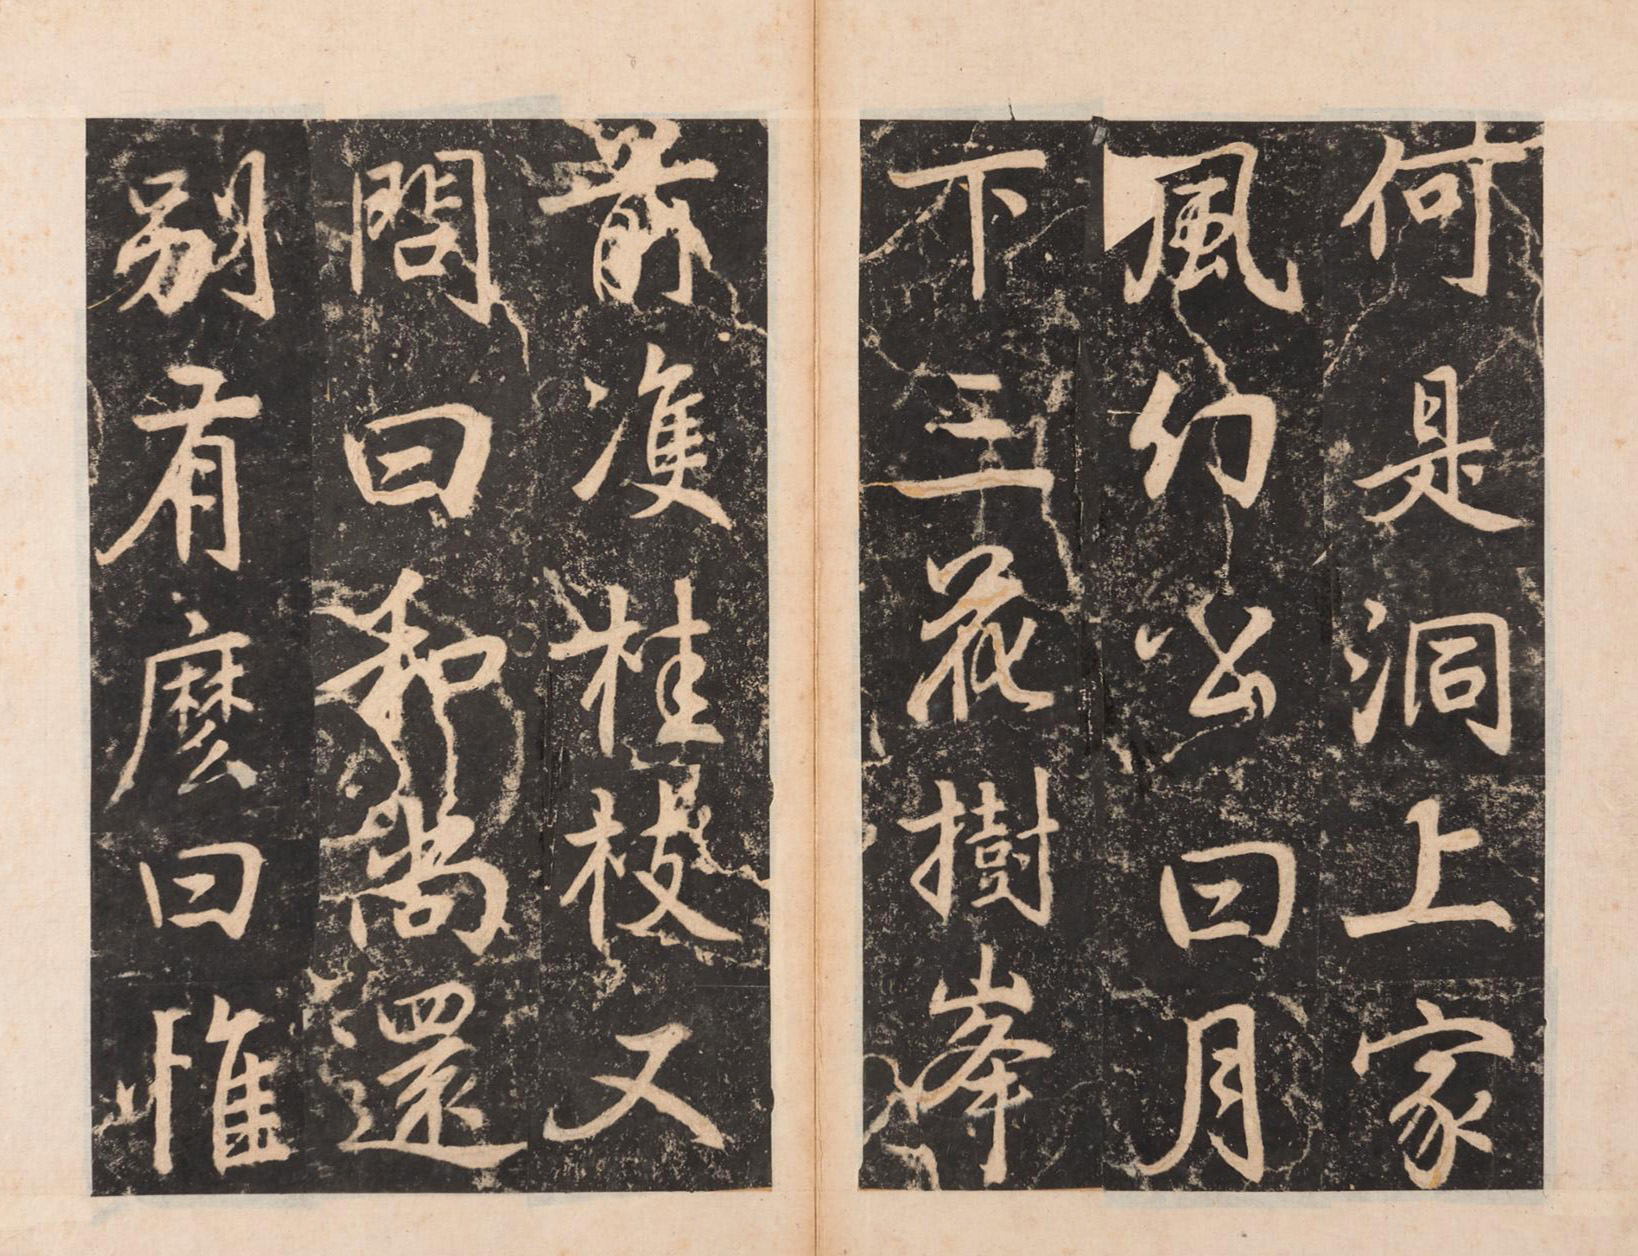 何是洞上家
風幻公曰月
下三花樹峯
前雙桂枝又
問曰和尚還
别有麽曰惟